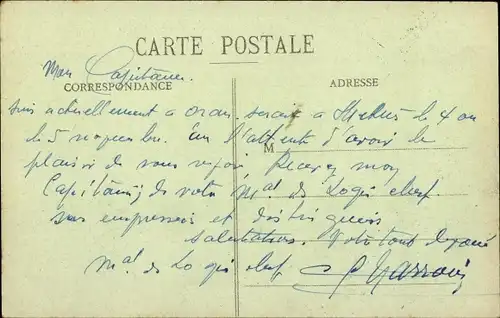 CARTE POSTALE
Mon Capitaine
CORRESPONDANCE
ADRESSE
suis actuellement a oran serai a le 4 ou
le 5 novembre. En l'attente d'avoir le
M
plaisir de vous revoir Recevez mon
Capitaine de votre Mal des Logis chef
ses empressées et distinguées
salutations. Votre tout dévoué
Mal des Logis chef